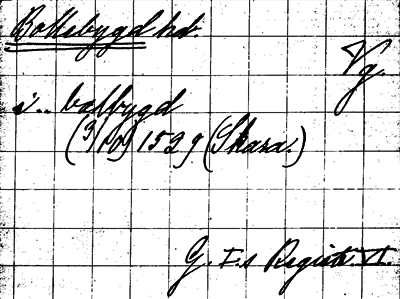 Bollebygd hd.
Vg.
i .. bolbygd
(3/10) 1529 (Skara.)
G. I:s Registr. VI.